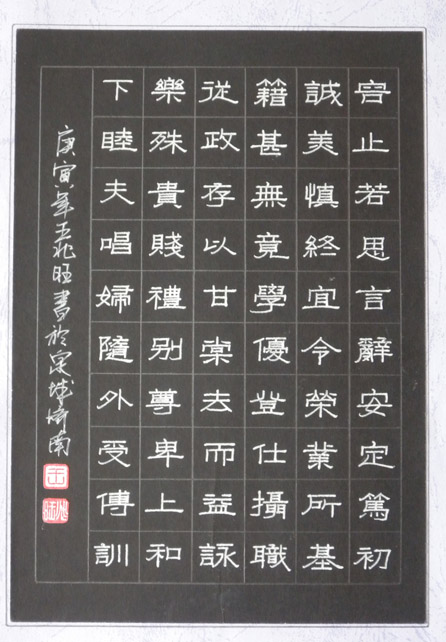 容止若思言辭安定篤初
誠美慎終宜令榮業所基
籍甚無竟學優登仕攝職
從政存以甘棠去而益詠
樂殊貴賤禮別尊卑上和
下睦夫唱婦隨外受傅訓
庚寅年王兆旺書於泉城濟南